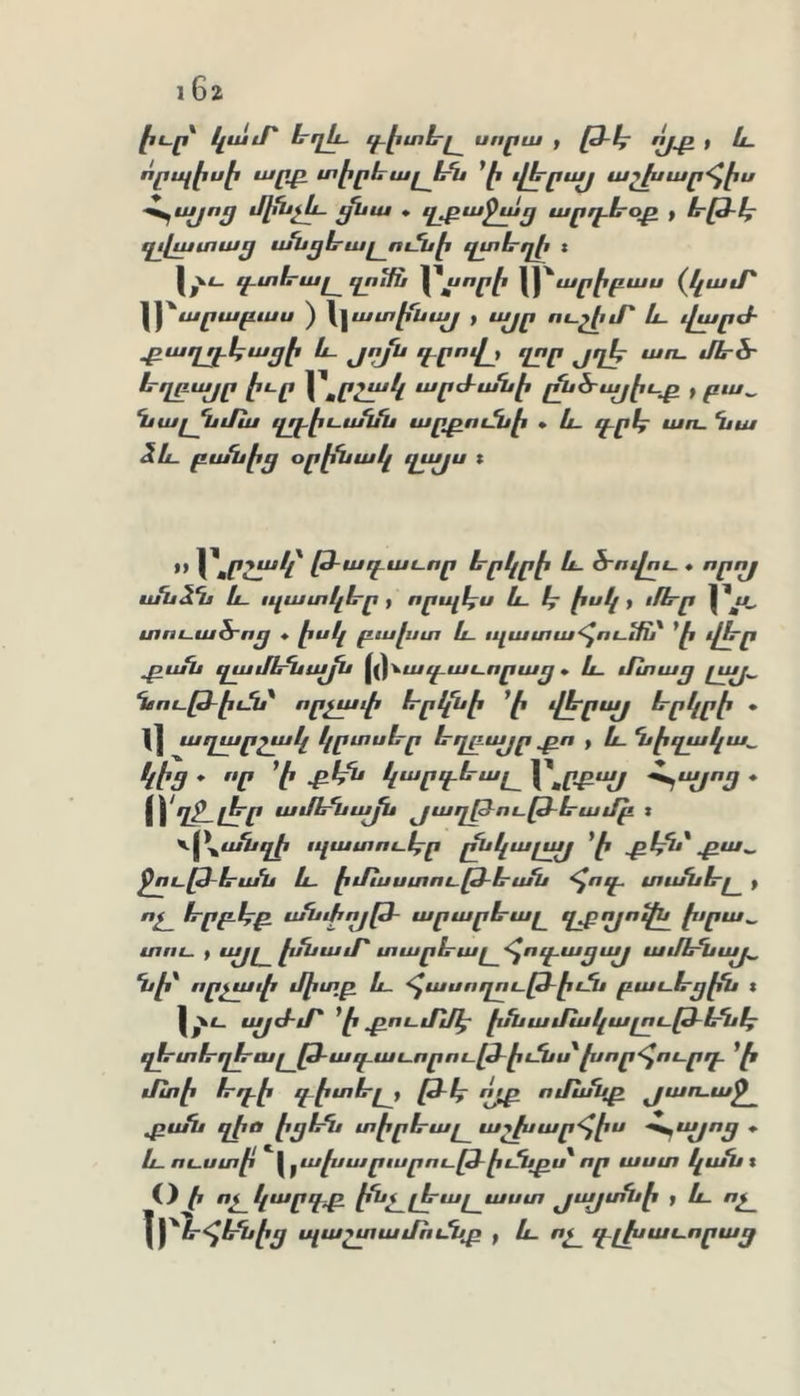 162
իւր՝ կամ եղև գիտել սորա , թէ ո՛յք , և
որպիսի արք տիրեալ են ՚ի վերայ աշխարհիս
Հայոց մինչև ցնա . զքաջաց արդեօք , եթէ
զվատաց անցեալ ունի զտեղի ։
Եւ գտեալ զոմն Ասորի Մարիբաս (կամ
Մարաբաս ) Կատինայ , այր ուշիմ և վարժ
քաղդէացի և յոյն գրով , զոր յղէ առ մեծ
եղբայր իւր Արշակ արժանի ընծայիւք , բա֊
նալ նմա զդիւանն արքունի . և գրէ առ նա
ձև բանից օրինակ զայս ։
„ Արշակ՝ թագաւոր երկրի և ծովու . որոյ
անձն և պատկեր , որպէս և է իսկ , մեր Աս֊
տուածոց . իսկ բախտ և պատահումն՝ ՚ի վեր
քան զամենայն Թագաւորաց . և մտաց լայ֊
նութիւն՝ որչափ երկնի ՚ի վերայ երկրի .
Վաղարշակ կրտսեր եղբայր քո , և նիզակա֊
կից . որ ՚ի քէն կարգեալ Արքայ Հայոց .
Ո՛ղջ լեր ամենայն յաղթութեամբ ։
Վանզի պատուէր ընկալայ ՚ի քէն՝ քա֊
ջութեան և իմաստութեան հոգ տանել ,
ոչ երբէք անփոյթ արարեալ զքոյովն խրա֊
տու , այլ խնամ տարեալ հոգացայ ամենայ֊
նի՝ որչափ միտք և հասողութիւն բաւեցին ։
Եւ այժմ ՚ի քումմէ խնամակալութենէ
զետեղեալ թագաւորութիւնս՝ խորհուրդ ՚ի
մտի եդի գիտել , թէ ո՛յք ոմանք յառաջ
քան զիս իցեն տիրեալ աշխարհիս Հայոց .
և ուստի՛ Նախարարութիւնքս՝ որ աստ կան ։
Օի ոչ կարգք ինչ լեալ աստ յայտնի , և ոչ
Մեհենից պաշտամունք , և ոչ գլխաւորաց